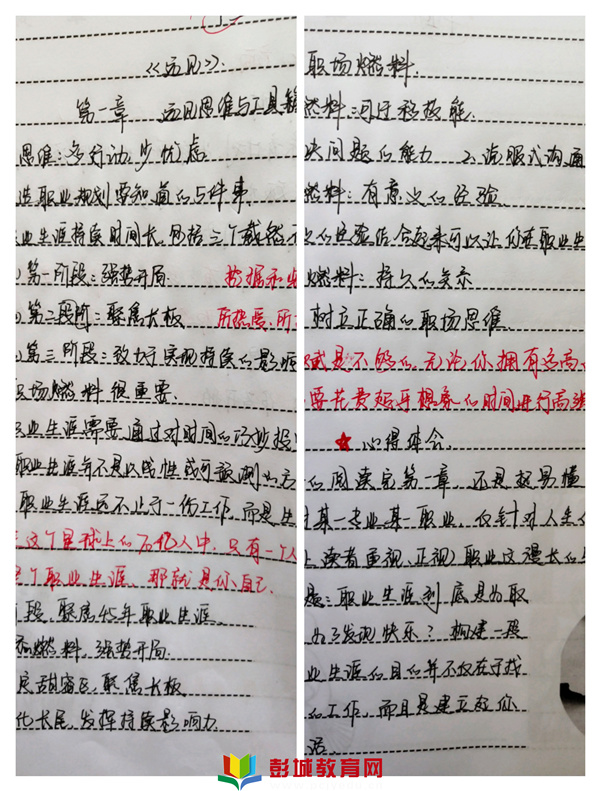 《远见》
第一章 远见思维与工具
思维:多行动,少忧虑
造职业规划要知道的5件事
业生涯持续时间长,包括三个截然不
第一阶段:强势开局
第二段阶:聚焦长板 所热爱、所
第三阶段:致力于实现持续的影响
职场燃料很重要
业生涯需要通过对时间的巧妙投
职业生涯并不是以线性或可预测的方
职业生涯远不止于一份工作,而是生
这个星球上的70亿人中,只有一个人
个职业生涯,那就是你自己.
段,聚焦45年职业生涯
燃料,强势开局
甜蜜区,聚焦长板
长尾,发挥持续影响力
职场燃料.
燃料:可迁移技能
决问题的能力 2、说服式沟通
燃料:有意义的经验
的经验结合起来可以让你在职业生
燃料:持久的关系
树立正确的职场思维
是不够的,无论你拥有多高
要花费超乎想象的时间进行高
★心得体会
的阅读完第一章,还是较易懂
某一专业某一职业,仅针对人生
读者重视、正视职业这漫长的
题:职业生涯到底是为取
为了发现快乐?构建一段
业生涯的目的并不仅在于找
的工作,而且是建立起你
活.
彭城教育网